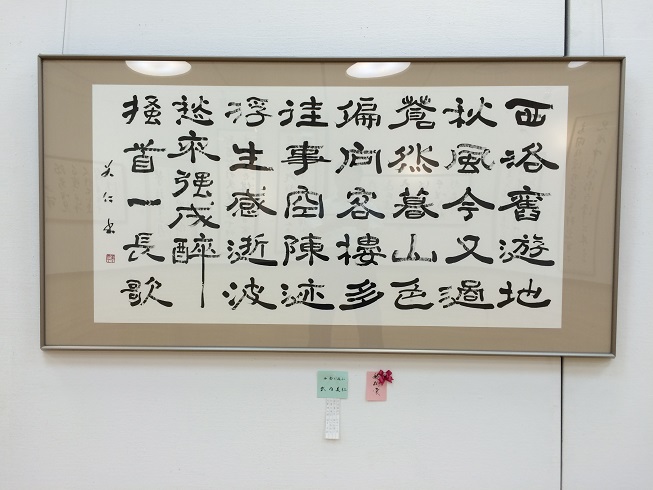 西洛舊游地
秋風今又過
蒼然暮山色
偏向客樓多
往事空陳迹
浮生感逝波
愁來強成醉
搔首一長歌
美仁書